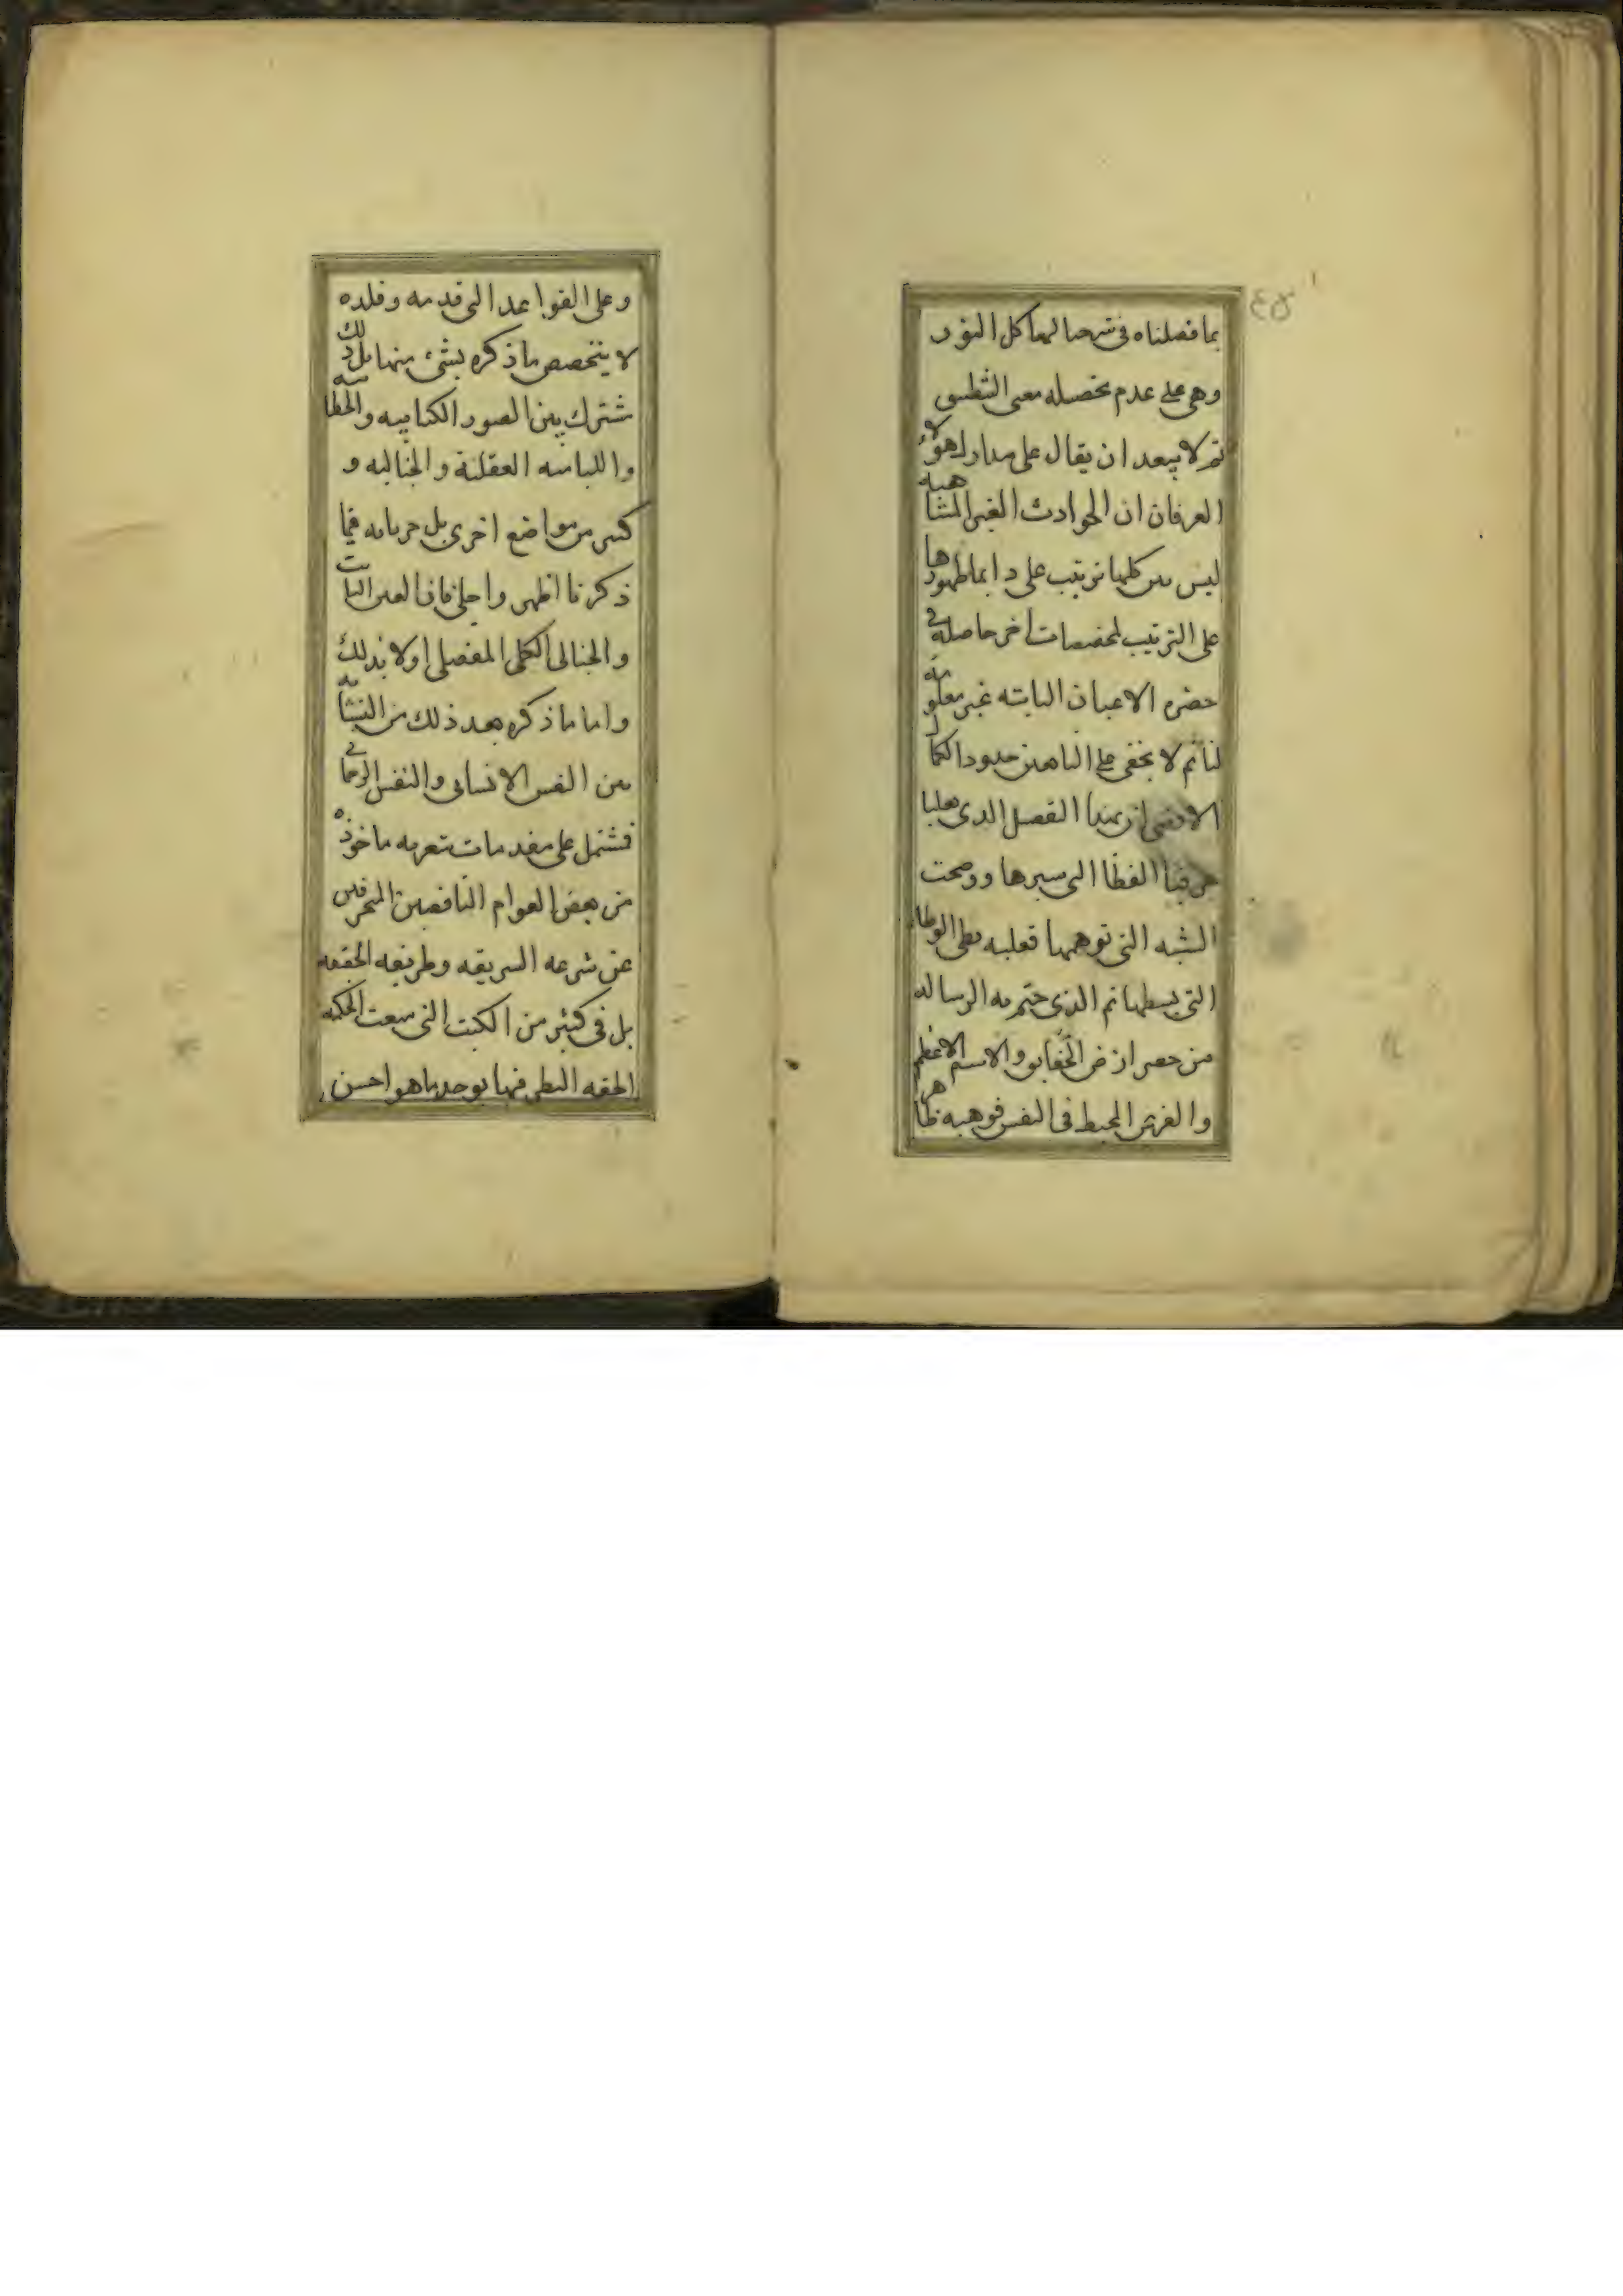 بما فصلناه فى شرحنا لهياكل النور
وهى على عدم تحصيله معنى التطبيق
ثم لا يبعد ان يقال على مدارك هؤلاء
العرفان ان الحوادث الغير المتناهيه
ليس بين كلها ترتيب على دايما ظهورها
على الترتيب لمخصصات اخر حاصله فى
حضره الاعيان الثابته غير معلومه
لنا ثم لا يخفى على الناهين حدود الكمال
التفصيل الذى
الغطا التى سترها ووضحت
الشبه التى توهمها فعليه
التى بسطها ثم الذى ختم به الرساله
من حصر الحقايق والاسم الاعظم
والعرش المحيط فى النفس فوهيه ظاهر
وعلى القواعد التى قدمه وقلده
لا يتخصص ما ذكره بشئ منها بل ذلك
مشترك بين الصور الكتابيه والخطابيه
واللباسيه العقليه والخياليه و
كثير من مواضع اخرى بل جريانه فيما
ذكرنا اظهر واجلى فان العين الثابت
والخيالى الكلى المفصلى اولا بذلك
واما ما ذكره بعد ذلك من النشابه
بين النفس الانسانى والنفس الرحمانى
فمشتمل على مقدمات شعريه ماخوذه
من بعض العوام الناقصين المنحرفين
عن شرعه الشريعه وطريقه الحقيقه
بل فى كثير من الكتب التى الحكمه
الحقه النظر فيها يوجد ما هو احسن